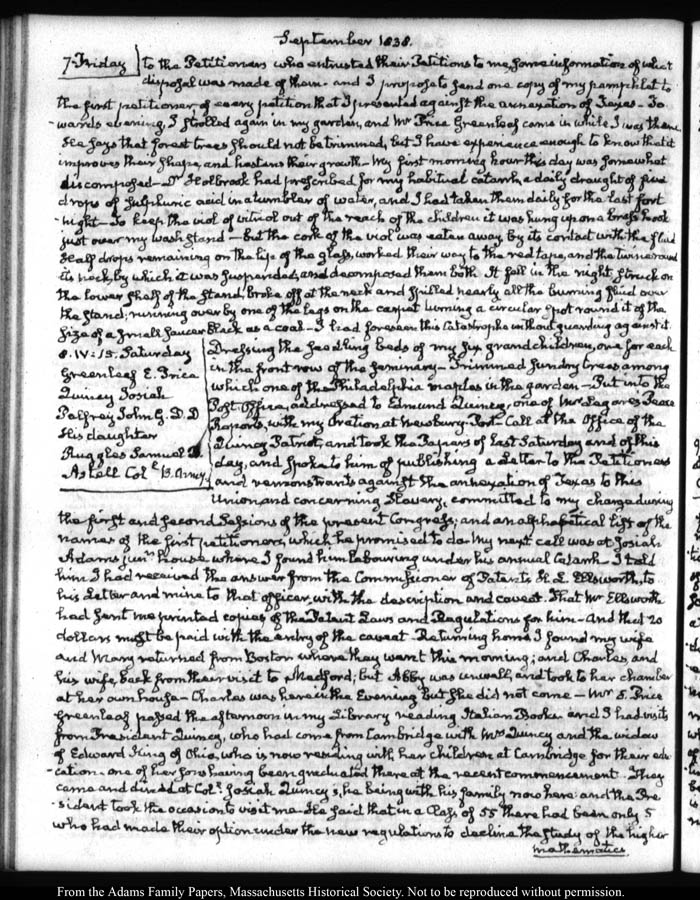 September 1838.
7. Friday
to the Petitioners who entrusted their Petitions to me, some information of what
disposal was made of them - and I propose to send one copy of my pamphlet to
the first petitioner of every petition that I presented against the annexation of Texas - To
wards evening, I strolled again in my garden, and Mr Price Greenleaf came in while I was there
He says that forest trees should not be trimmed, but I have experience enough to know that it
improves their shape, and hastens their growth - My first morning hour this day was somewhat
discomposed - Dr Holbrook had prescribed for my habitual catarrh, a daily draught of five
drops of sulphuric acid in a tumbler of water, and I had taken them daily for the last fort
-night - To keep the viol of vitriol out of the reach of the children it was hung up on a brass hook
just over my wash stand - but the cork of the viol was eaten away by its contact with the fluid
Small drops remaining on the lip of the glass, worked their way to the red tape, and the twine round
its neck, by which it was suspended, and decomposed them both. It fell in the night, struck on
the lower shelf of the stand, broke off at the neck and spilled nearly all the burning fluid over
the stand; running over by one of the legs on the carpet burning a circular spot round it of the
size of a small saucer black as a coal - I had foreseen this catastrophe without guarding against it.
8. IV: 15. Saturday
Greenleaf E. Price
Quincy Josiah
Palfrey John G. D.D
His daughter
Ruggles Samuel
Astell Col. B. Army
Dressing the seedling beds of my six grandchildren, one for each
in the front row of the Seminary - Trimmed sundry trees among
which one of the Philadelphia maples in the garden - Put into the
Post Office, addressed to Edmund Quincy, one of Mr Legares Peace
Reports, with my Oration at Newbury-Port - Call at the Office of the
Quincy Patriot, and took the Papers of last Saturday and of this
day, and spoke to him of publishing a Letter to the Petitioners
and remonstrants against the annexation of Texas to this
Union and concerning Slavery, committed to my charge during
the first and second Sessions of the present Congress; and an alphabetical list of the
names of the first petitioners, which he promised to do - My next call was at Josiah
Adams junr house where I found him labouring under his annual Catarrh - I told
him I had received the answer from the Commissioner of Patents H. L. Ellsworth, to
his Letter and mine to that officer, with the description and caveat. That Mr Ellsworth
had sent me printed copies of the Patent Laws and Regulations for him - And that 20
dollars must be paid with the entry of the caveat - Returning home I found my wife
and Mary returned from Boston where they went this morning; and Charles, and
his wife, back from their visit to Medford; but Abby was unwell, and took to her chamber
at her own house - Charles was here in the Evening but she did not come - Mr E. Price
Greenleaf passed the afternoon in my Library reading Italian Books and I had visits
from President Quincy, who had come from Cambridge with Mrs Quincy and the widow
of Edward King of Ohio, who is now residing with her children at Cambridge for their edu
-cation - one of her sons having been graduated there at the recent commencement. They
came and dined at Col. Josiah Quincy's, he being with his family now here and the Pre
-sident took the occasion to visit me - He said that in a Class of 55 there had been only 5
who had made their option under the new regulations to decline the study of the higher
mathematics.
From the Adams Family Papers, Massachusetts Historical Society. Not to be reproduced without permission.